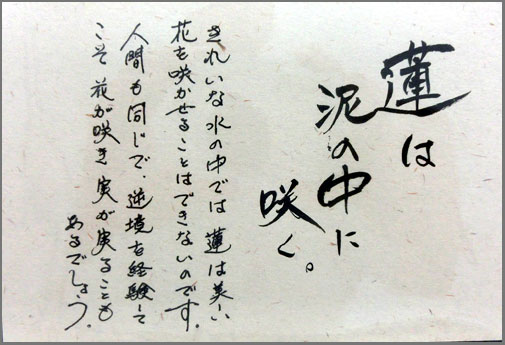 蓮は
泥の中に
咲く。
きれいな水の中では蓮は美しい
花を咲かせることはできないのです。
人間も同じで、逆境を経験して
こそ花が咲き実が実ることも
あるでしょう。